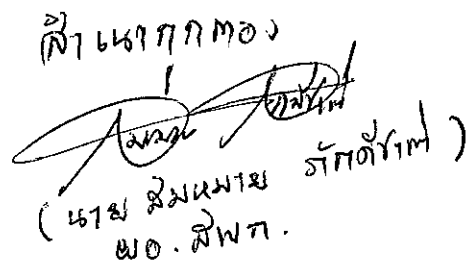 สำเนาถูกต้อง
(นาย สมหมาย ภักดีชาติ)
ผอ. สพก.